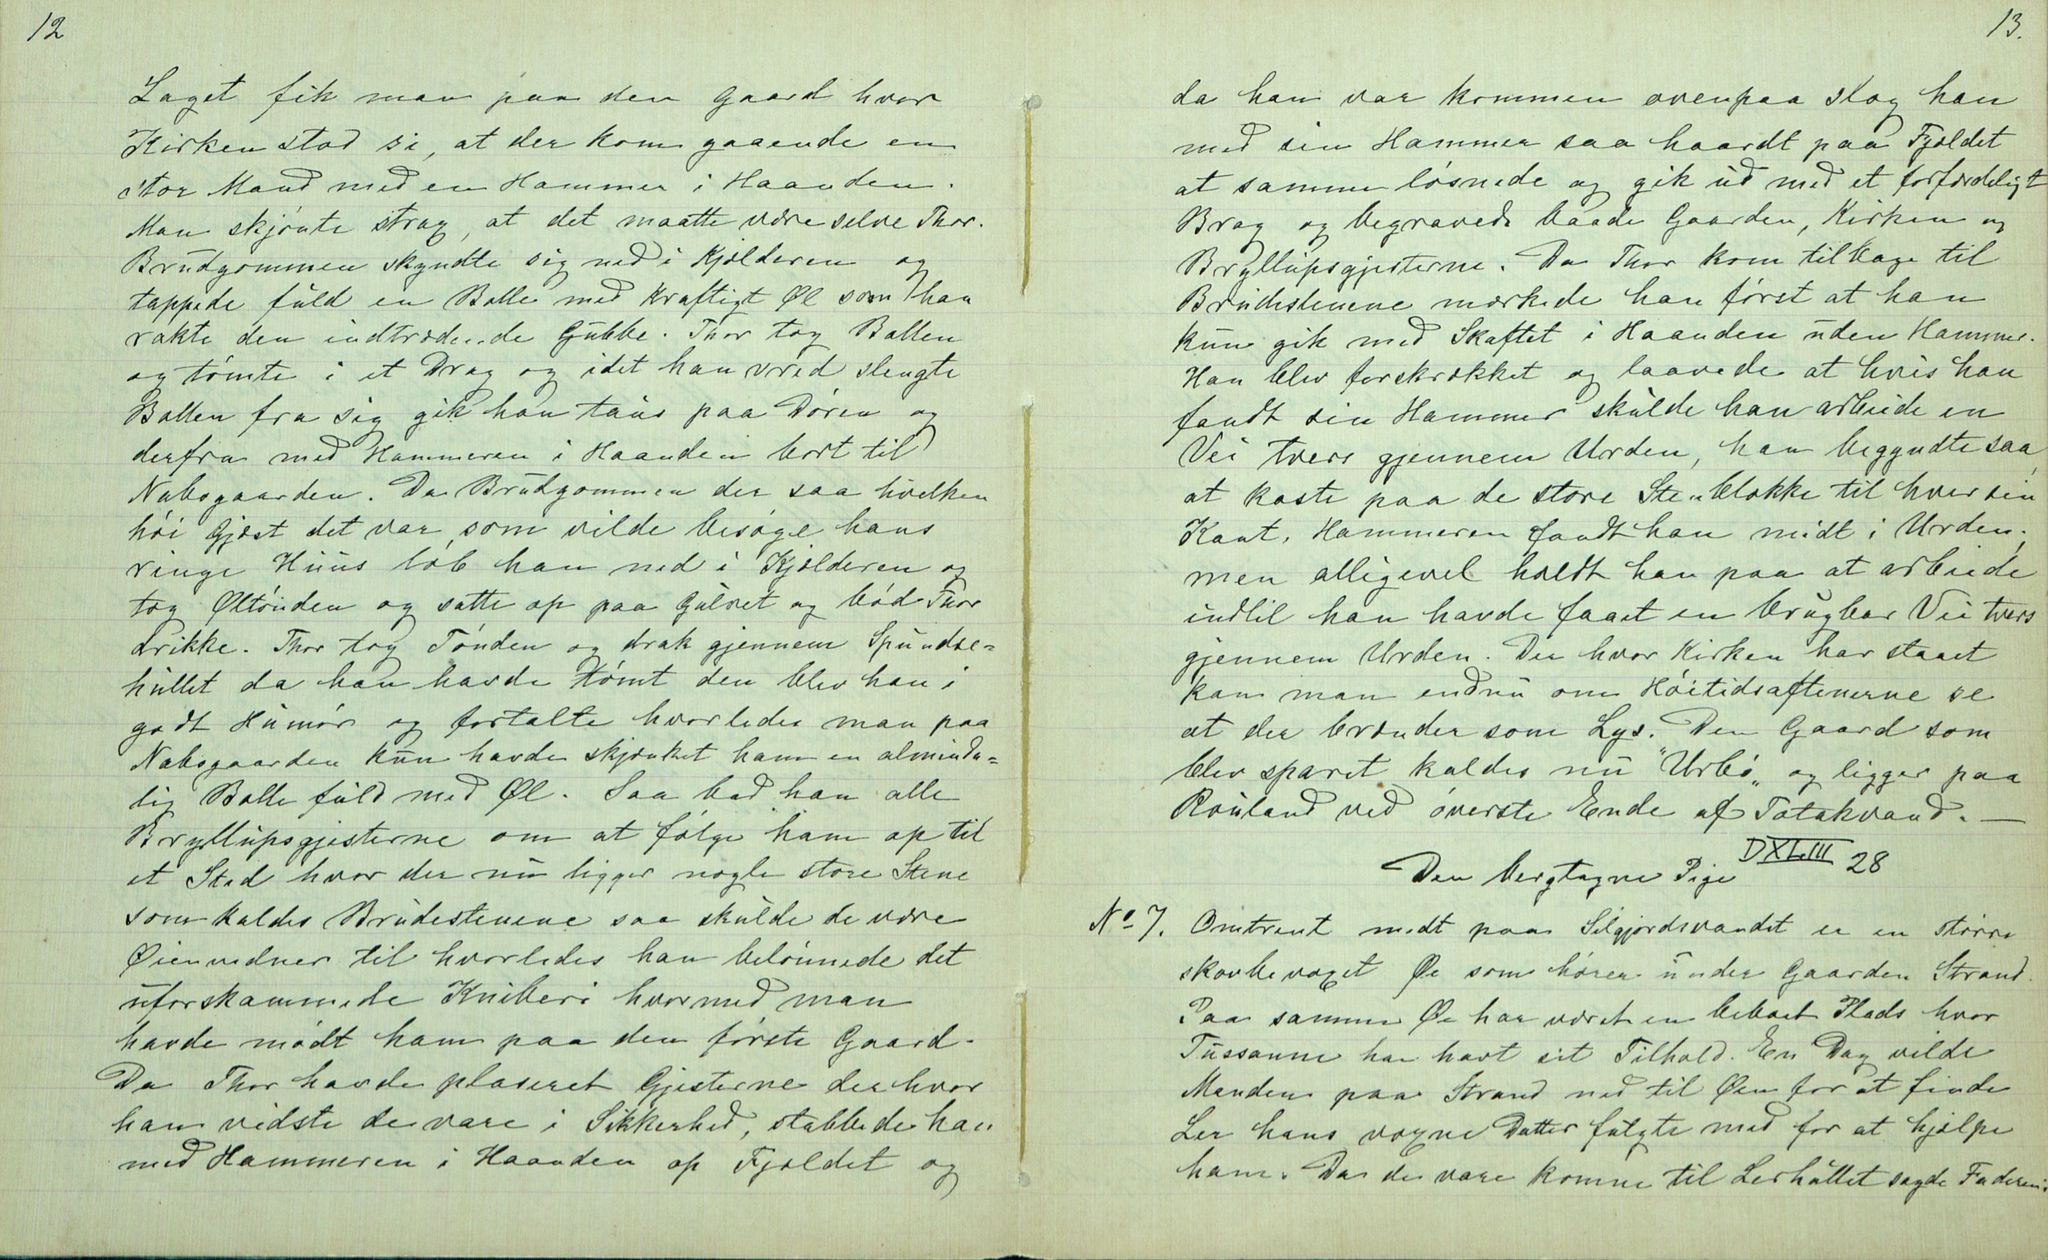 12
Laget fik man paa den Gaard hvor
Kirken stod si, at der kom gaaende en
stor Mand med en Hammer i Haanden.
Man skjønte strax, at det maatte være selve Thor.
Brudgommen skyndte sig ned i Kjælderen og
tappede fuld en Bolle med kraftigt Øl som han
rakte den indtrædende Gubbe. Thor tog Bollen
og tømte i et Drag og idet han vred slengte
Bollen fra sig gik han taus paa Døren og
derfra med Hammeren i Haanden bort til
Nabogaarden. Da Brudgommen der saa hvilken
høi Gjæst det var som vilde besøge hans
ringe Huus løb han ned i Kjælderen og
tog Øltønden og satte op paa Gulvet og bød Thor
drikke. Thor tog Tønden og drak gjennem Spundse-
hullet da han havde tømt den blev han i
godt Humør og fortalte hvorledes man paa
Nabogaarden kun havde skjænket ham en alminde-
lig Bolle fuld med Øl. Saa bad han alle
Bryllupsgjesterne om at følge ham op til
et Sted hvor der nu ligger nogle store Stene
som kaldes Brudestenene saa skulde de være
Øienvidner til hvorledes han belønnede det
uforskammede Kniberi hvormed man
havde mødt ham paa den første Gaard.
Da Thor havde placeret Gjesterne der hvor
han vidste de vare i Sikkerhed, stabbede han
med Hammeren i Haanden op Fjeldet og
13.
da han var kommen ovenpaa slog han
med sin Hammer saa haardt paa Fjeldet
at samme løsnede og gik ud med et forfærdeligt
Brag og begravede baade Gaarden, Kirken og
Bryllupsgjesterne. Da Thor kom tilbage til
Brudestenene mærkede han først at han
kun gik med Skaftet i Haanden uden Hammer.
Han blev forskrækket og laavede at hvis han
fandt sin Hammer skulde han arbeide en
Vei tvers gjennem Urden, han begyndte saa
at kaste paa de store Stenblokke til hver sin
Kant. Hammeren fandt han midt i Urden,
men alligevel holdt han paa at arbeide
indtil han havde faaet en brugbar Vei tvers
gjennem Urden. Der hvor Kirken har staaet
kan man endnu om Høitidsaftenerne se
at der brænder som Lys. Den Gaard som
blev sparet kaldes nu "Urbø„ og ligger paa
Rauland ved øverste Ende af Totakvand. —
Den bergtagne Pige DXLIII 28
No 7. Omtrent midt paa Silgjordsvandet er en større
skovbevoxet Øe som hører under Gaarden Strand.
Paa samme Øe har været en beboet Plads hvor
Tussanne har havt sit Tilhold. En Dag vilde
Manden paa Strand ned til Øen for at finde
Ler hans voxne Datter fulgte med for at hjælpe
ham. Da de vare komne til Lerhullet sagde Faderen: